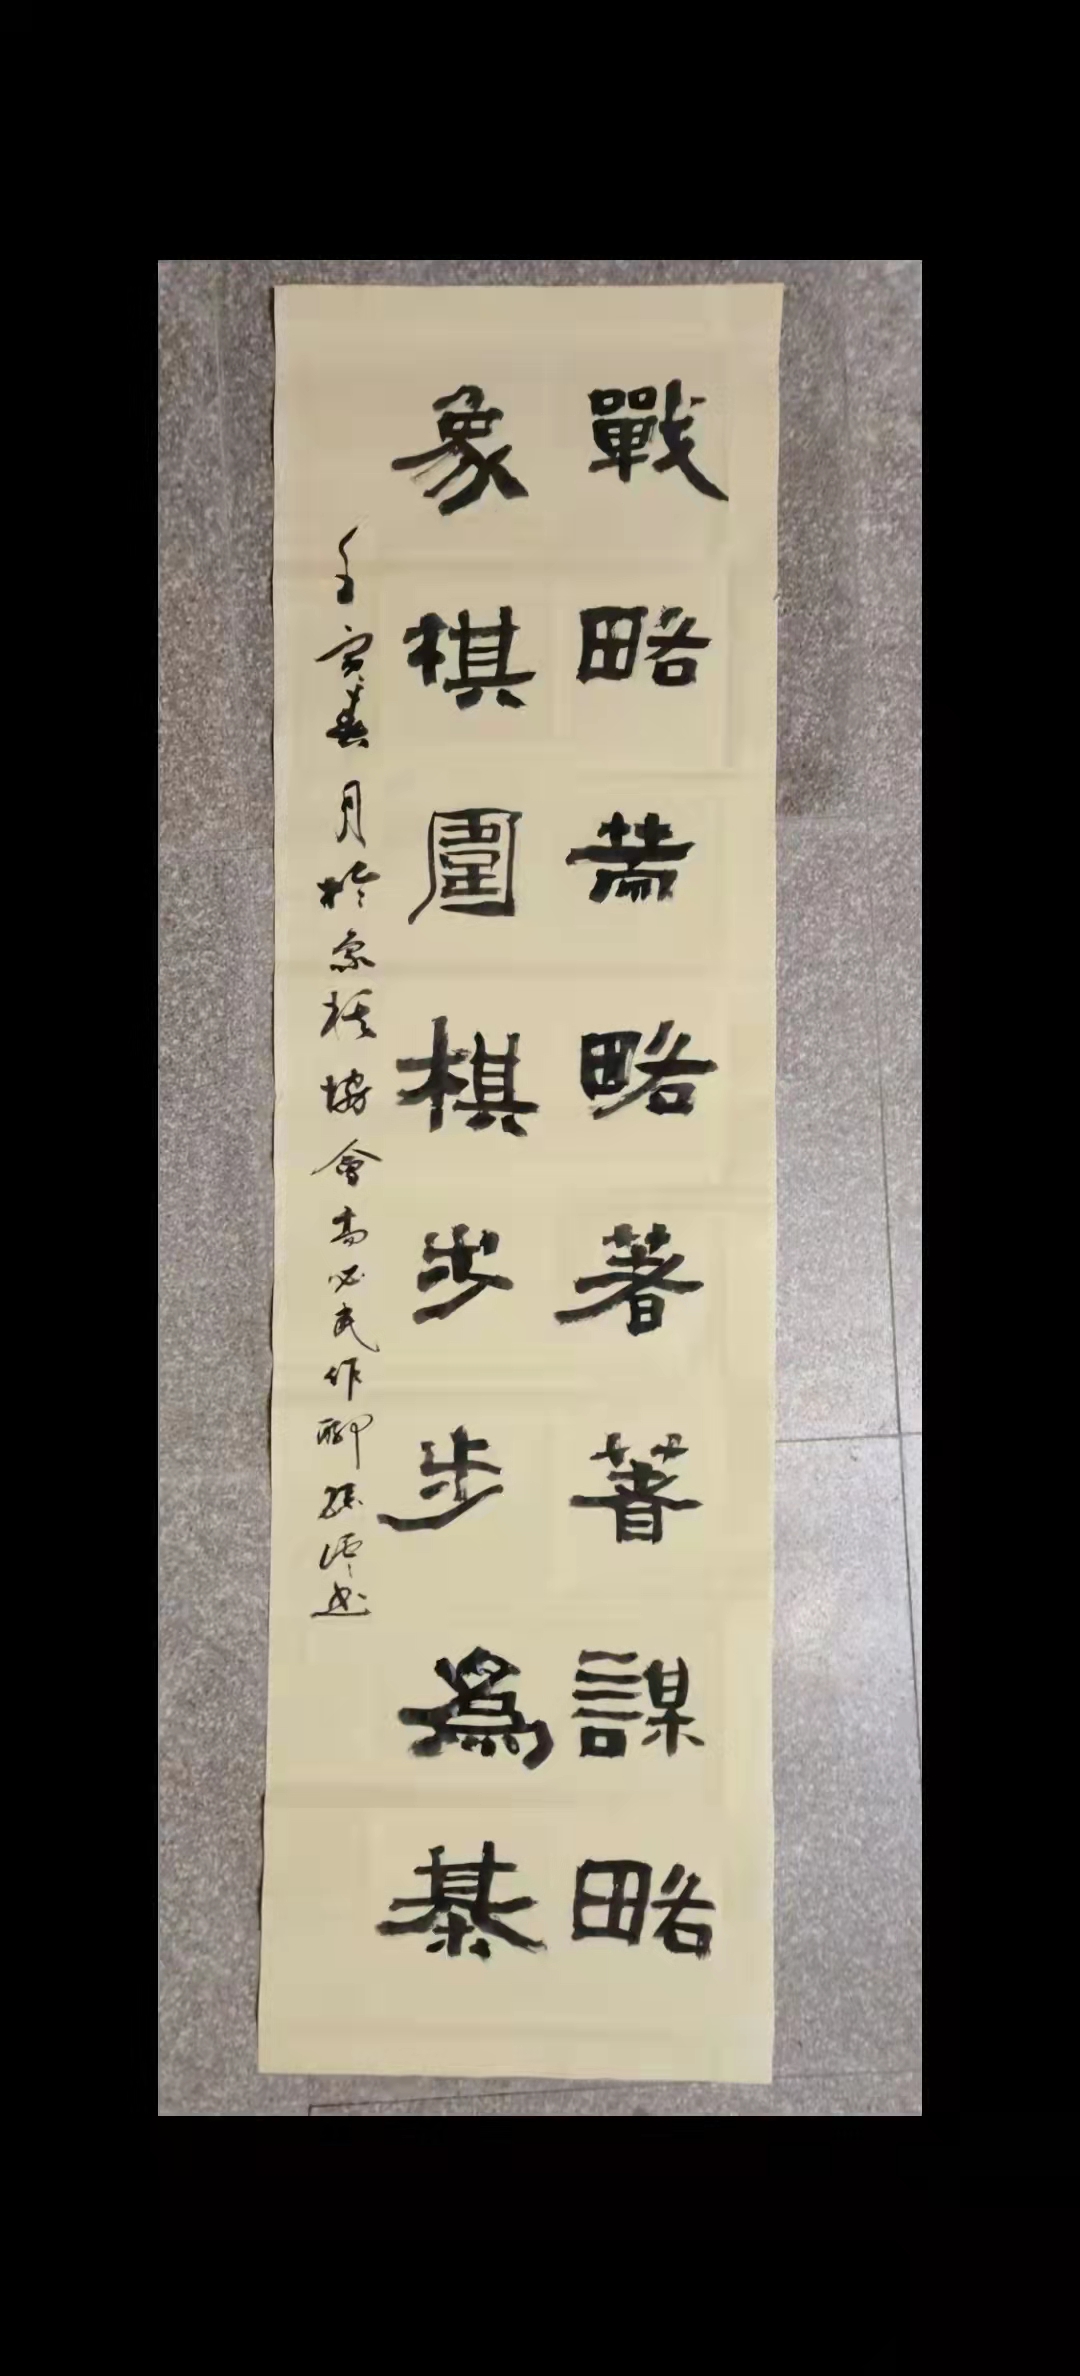 戰略黃略著著謀略
象棋圍棋步步為棊
壬寅春月於象棋協會高必武作聊孫澤書